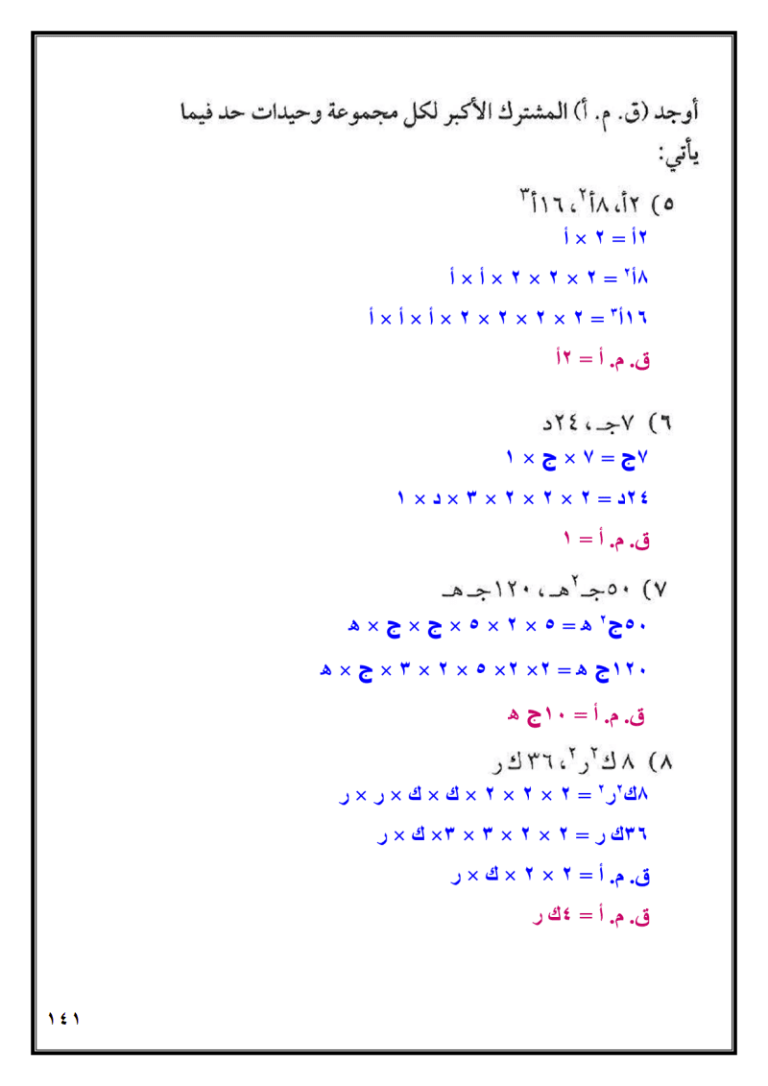 أوجد (ق. م. أ) المشترك الأكبر لكل مجموعة وحيدات حد فيما
يأتي:
٥) ٢أ، ٨أ٢، ١٦أ٣
٢أ = ٢ × أ
٨أ٢ = ٢ × ٢ × ٢ × أ × أ
١٦أ٣ = ٢ × ٢ × ٢ × ٢ × أ × أ × أ
ق. م. أ = ٢أ
٦) ٧جـ، ٢٤د
٧ج = ٧ × ج × ١
٢٤د = ٢ × ٢ × ٢ × ٣ × د × ١
ق. م. أ = ١
٧) ٥٠جـ٢هـ، ١٢٠جـ هـ
٥٠ج٢ ه = ٥ × ٢ × ٥ × ج × ج × ه
١٢٠ج ه = ٢× ٢× ٥ × ٢ × ٣ × ج × ه
ق. م. أ = ١٠ج ه
٨) ٨ ك٢ر٢، ٣٦ ك ر
٨ك٢ر٢ = ٢ × ٢ × ٢ × ك × ك × ر × ر
٣٦ك ر = ٢ × ٢ × ٣ × ٣× ك × ر
ق. م. أ = ٢ × ٢ × ك × ر
ق. م. أ = ٤ك ر
١٤١